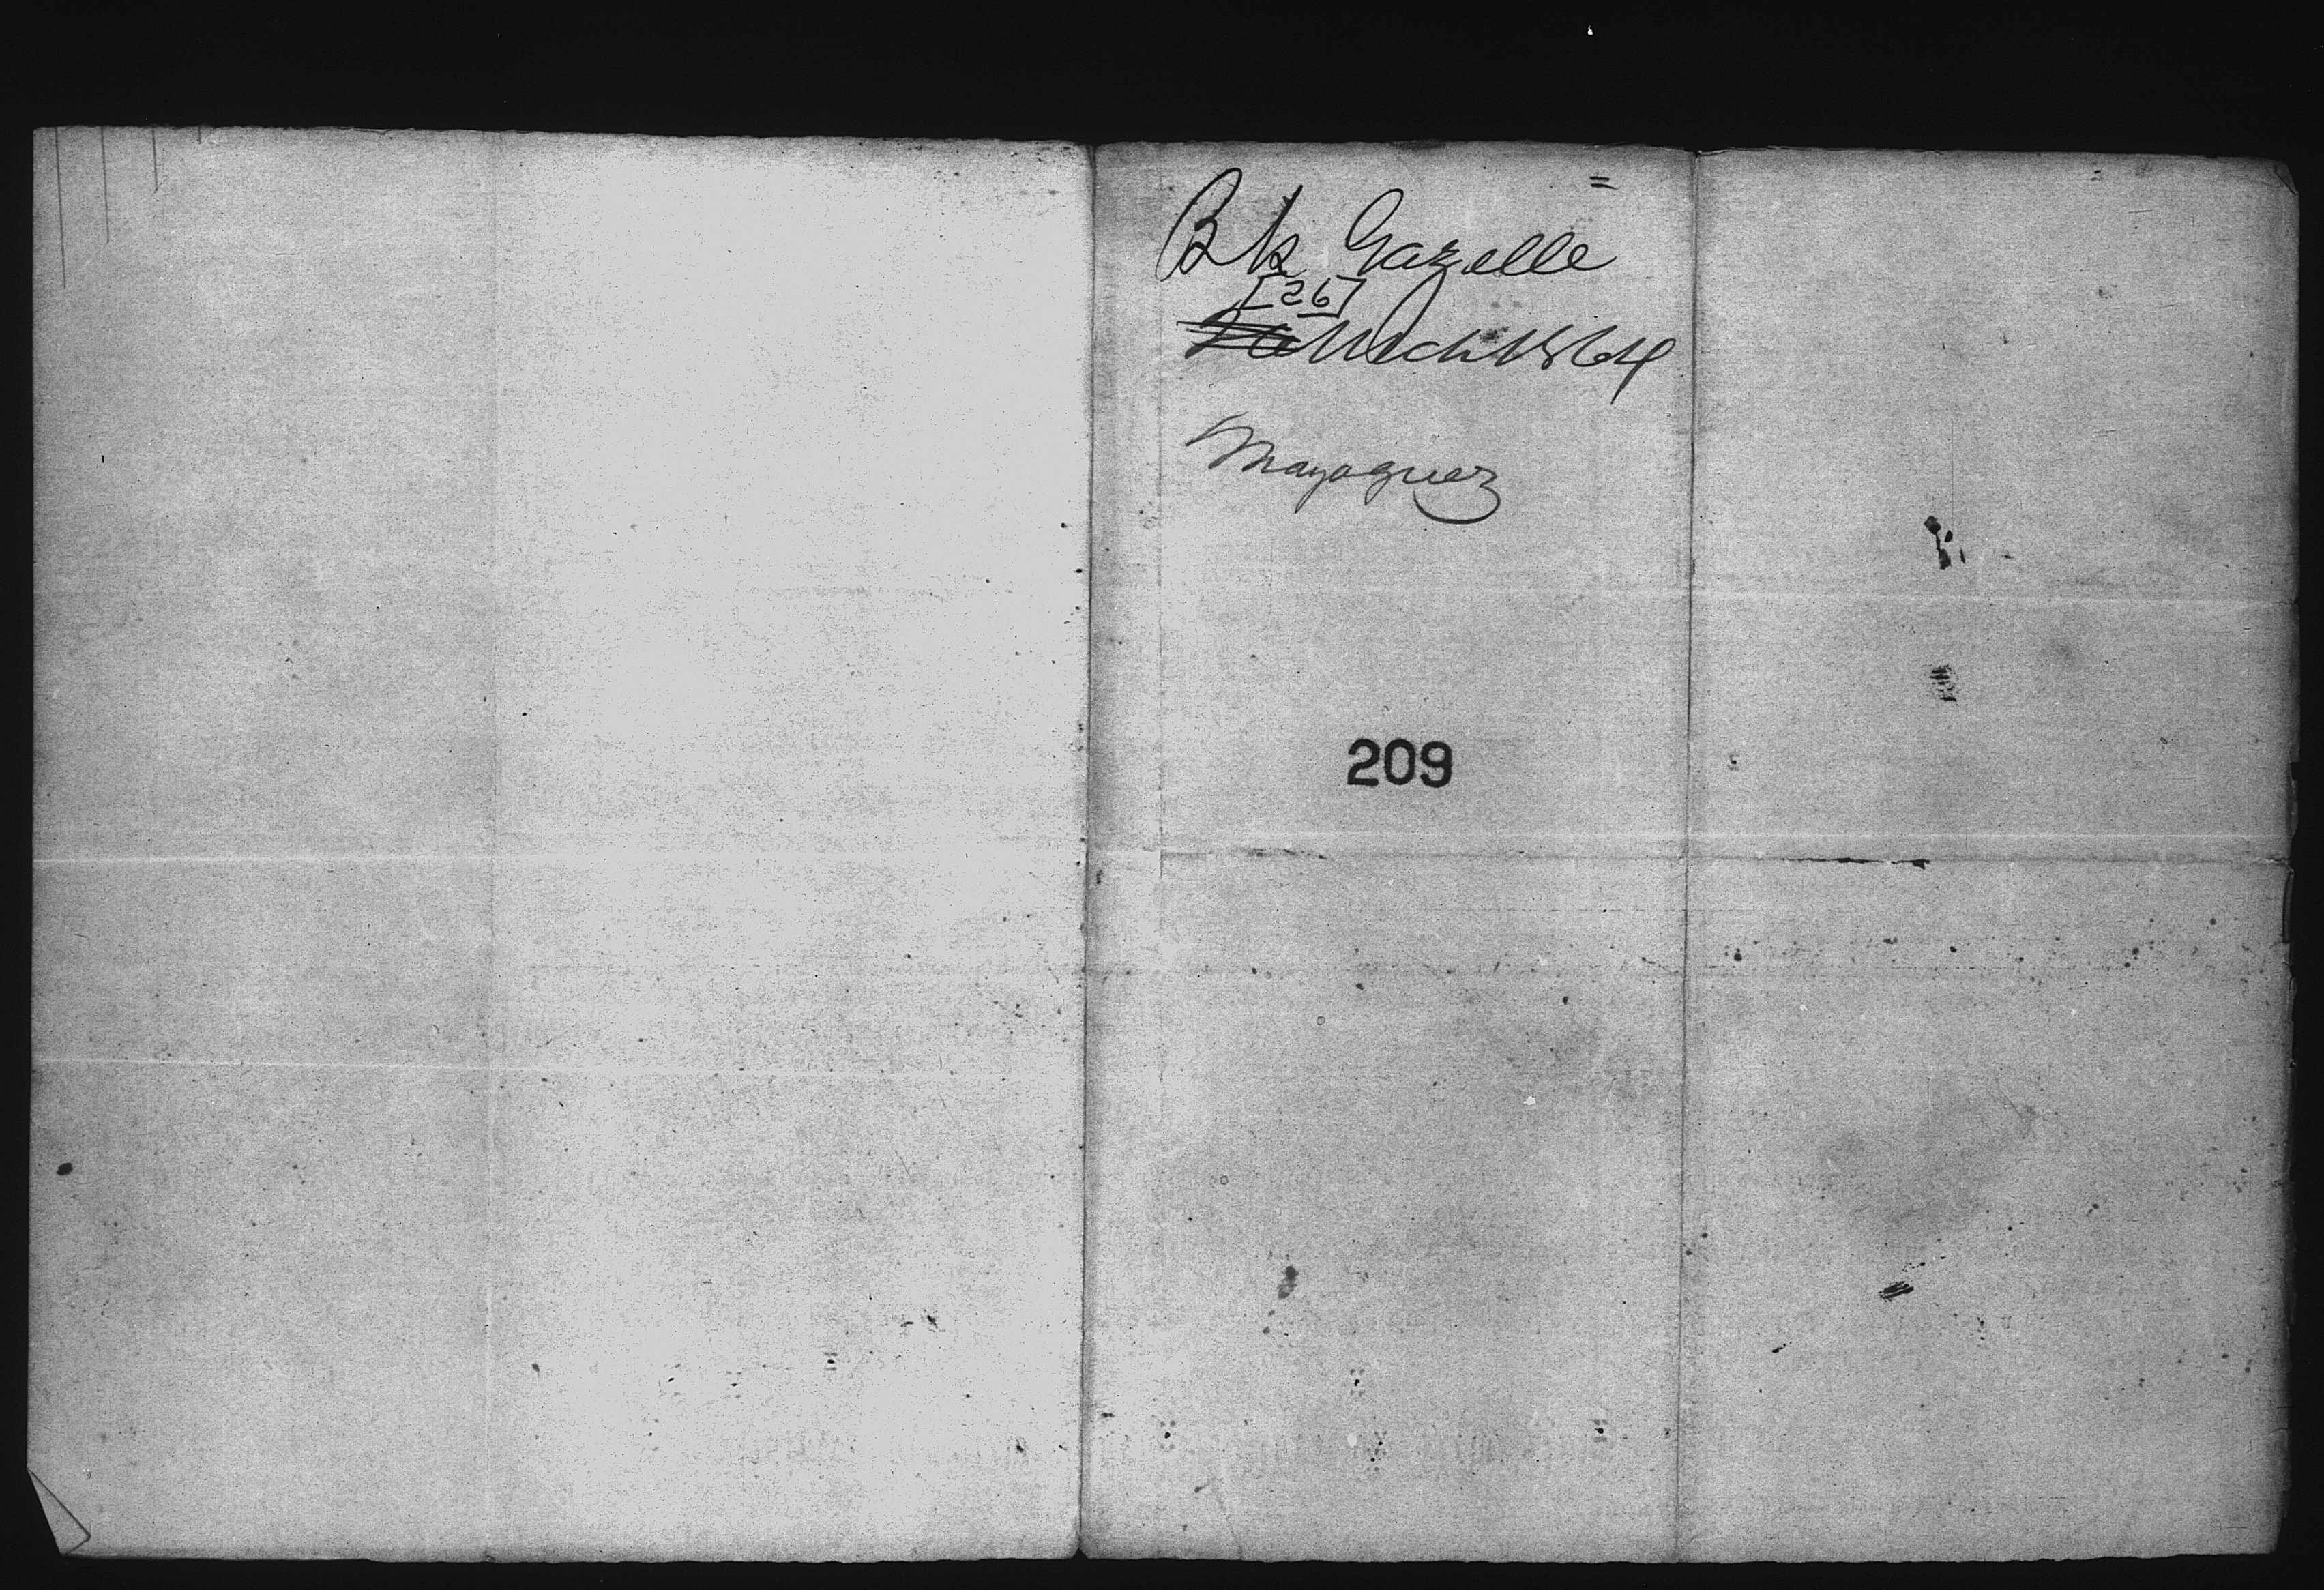 Bk Gazelle
[26]
Mch 1864
Mayaguez
209